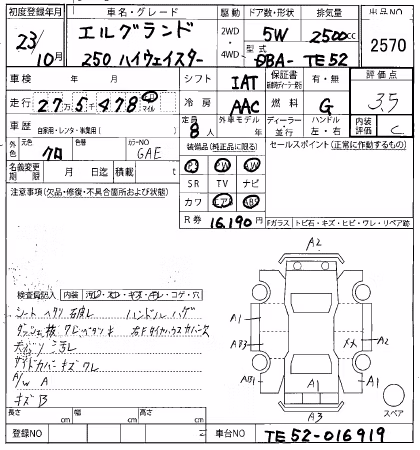 初度登録年月 車名・グレード 駆動 ドア数・形状 排気量 出品NO
23/10月 エルグランド 2WD・4WD 5W 2500cc 2570
250 ハイウェイスター 型式 DBA-TE52
車検 年 月 シフト IAT 保証書 有・無 評価点 3.5
走行 27万5千478 冷房 AAC 燃料 G
車歴 自家用・レンタ・事業用( ) 定員 8人 外車モデル 年 ディーラー・並行 ハンドル 左・右 内装評価 C
外色 元色 クロ 色替 カラーNO GAE 装備品(純正品に限る) セールスポイント(正常に作動するもの)
名義変更期限 月 日迄 積載 t PS PW AW
SR TV ナビ
注意事項(欠品・修復・不具合箇所および状態) カワ エアB ABS
R券 16,190円 Fガラス トビ石・キズ・ヒビ・ワレ・リペア跡
A2
検査員記入 内装 汚レ・スレ・キズ・キレ・コゲ・穴
シート ヘタリ ハンドル ハゲ
天張リ 汚レ
サイドカバー キズ ワレ
A/W A
キズ B
A1 AB3 AB1 A2 A1 A1 A3
スペア
長さ cm 幅 cm 高さ cm
登録NO 車台NO TE52-016919